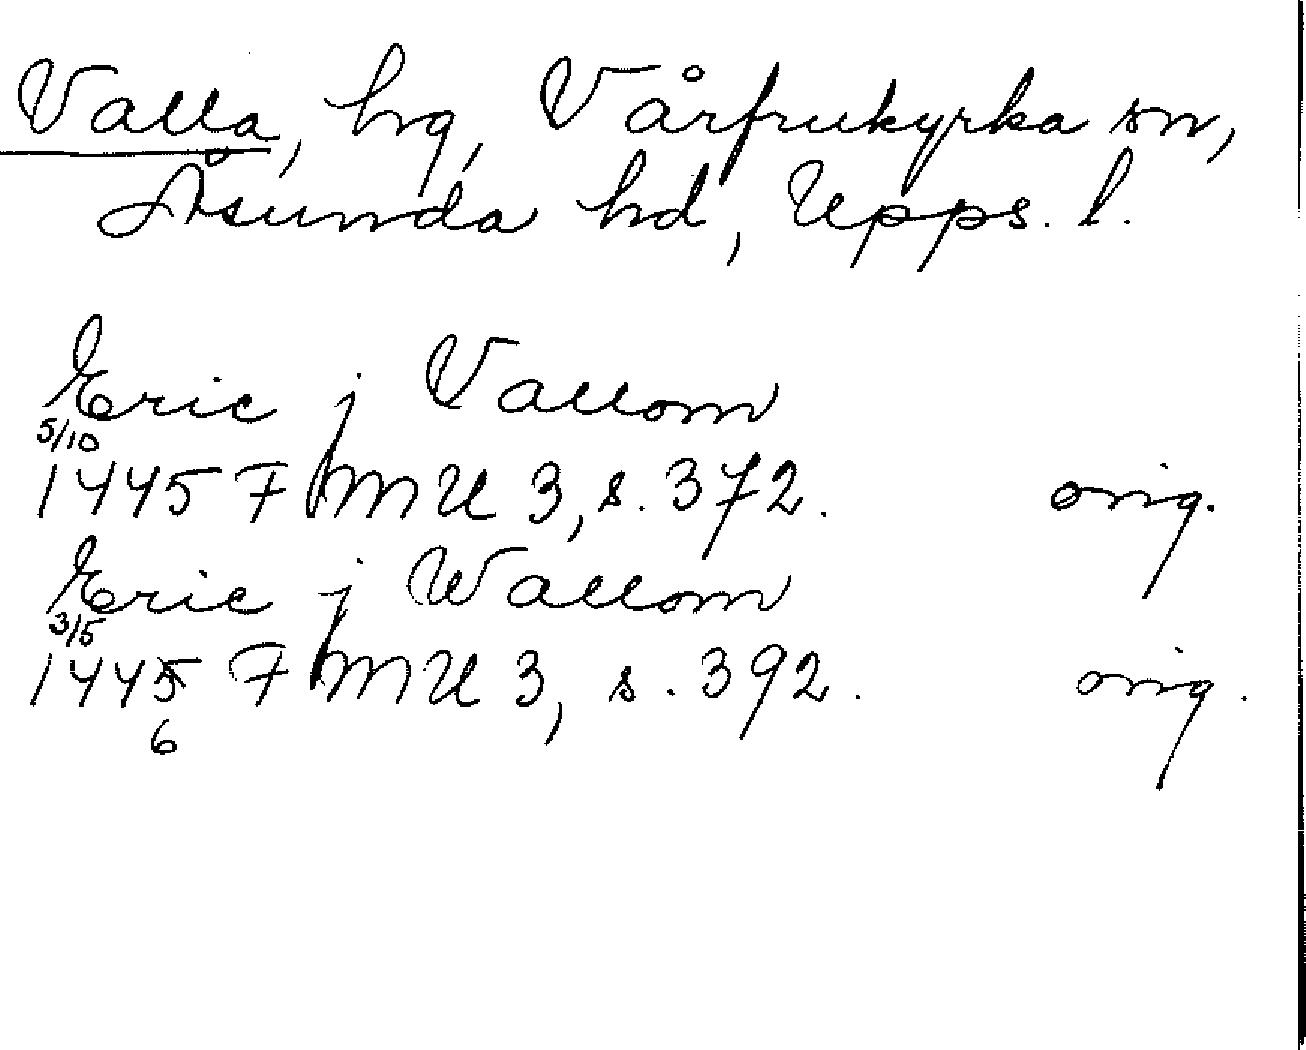 Valla, hg, Vårfrukyrka sn,
Åsunda hd, Upps. l.
Eric j Vallom
5/10
1445 FMU 3, s. 372. orig.
Eric j Wallom
3/5
1445 FMU 3, s. 392. orig.
6